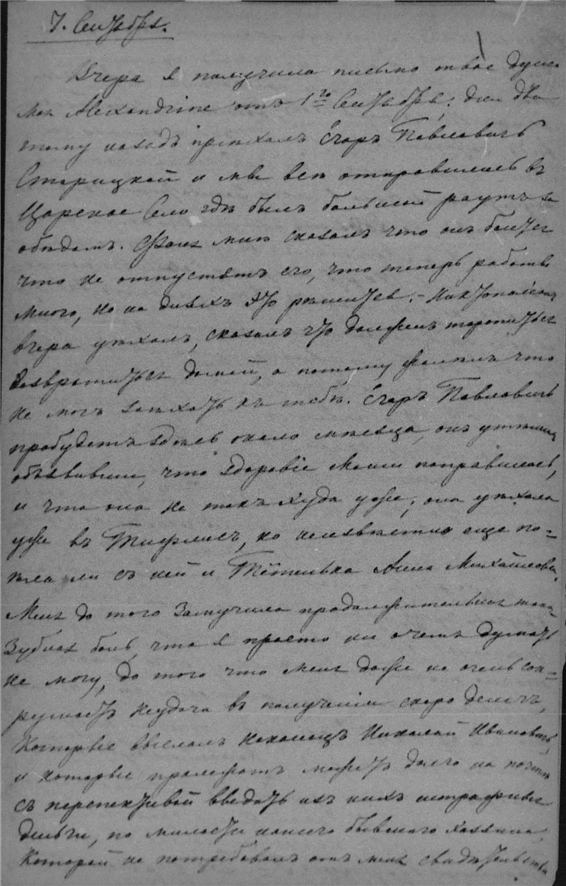 7. Сентября.
Вчера я получила письмо твое душа
моя Alexandrine отъ 1го Сентября; дня два
тому назадъ пріѣхалъ Егоръ Павловичь
Старицкой и мы всѣ отправились въ
Царское Село гдѣ былъ большой раутъ за
обѣдомъ. мнѣ сказалъ что онъ боится
что не отпустятъ его, что теперь работы
много, но на дняхъ это рѣшится. -
вчера уѣхалъ, сказалъ что долженъ торопиться
возвратиться домой, а потому жалѣлъ что
не могъ заѣхать къ тебѣ. Егоръ Павловичь
пробудетъ здѣсь около мѣсяца, онъ утѣшилъ
объявивши, что здоровіе Маши поправилось,
и что она не такъ худа уже; она уѣхала
уже въ Тифлисъ, но неизвѣстно еще по-
ѣхала ли съ ней и Тётинька Анна Михайловна.
Меня до того замучила продолжительная моя
зубная боль, что я просто ни о чемъ думать
не могу, до того что меня даже не очень сок-
рушаетъ неудача въ полученіи скоро денегъ,
которые выслалъ наконецъ Николай Ивановичь,
и которые пролежатъ можетъ долго на почтѣ
съ перспективой выдать изъ нихъ штрафные
деньги, по милости нашего бывшаго хозяина,
которой не потребовалъ отъ меня свидѣтельства